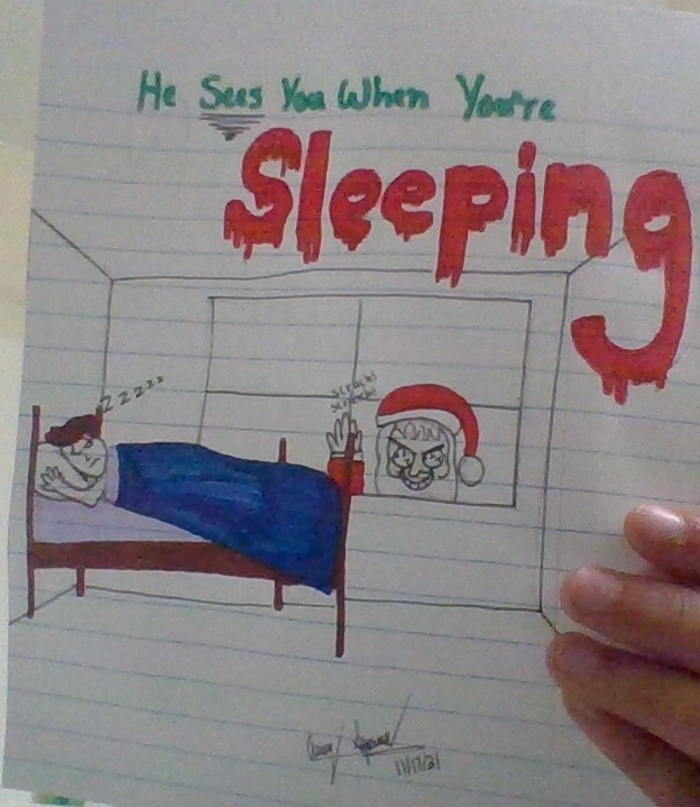 He Sees You When You're
Sleeping
ZZZZZ
Scratch!
Scratch!
11/17/21